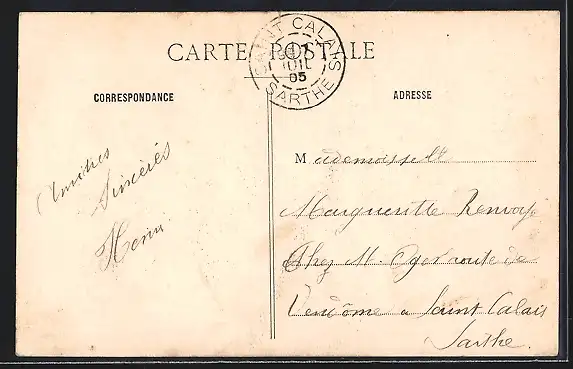 CARTE POSTALE
SAINT CALAIS
JUIL
05
SARTHE
CORRESPONDANCE
Amitiés
Sincères
Henri
ADRESSE
Mademoiselle
Marguerite Renvoy
Chez M. Oger route de
Vendôme a Saint Calais
Sarthe.